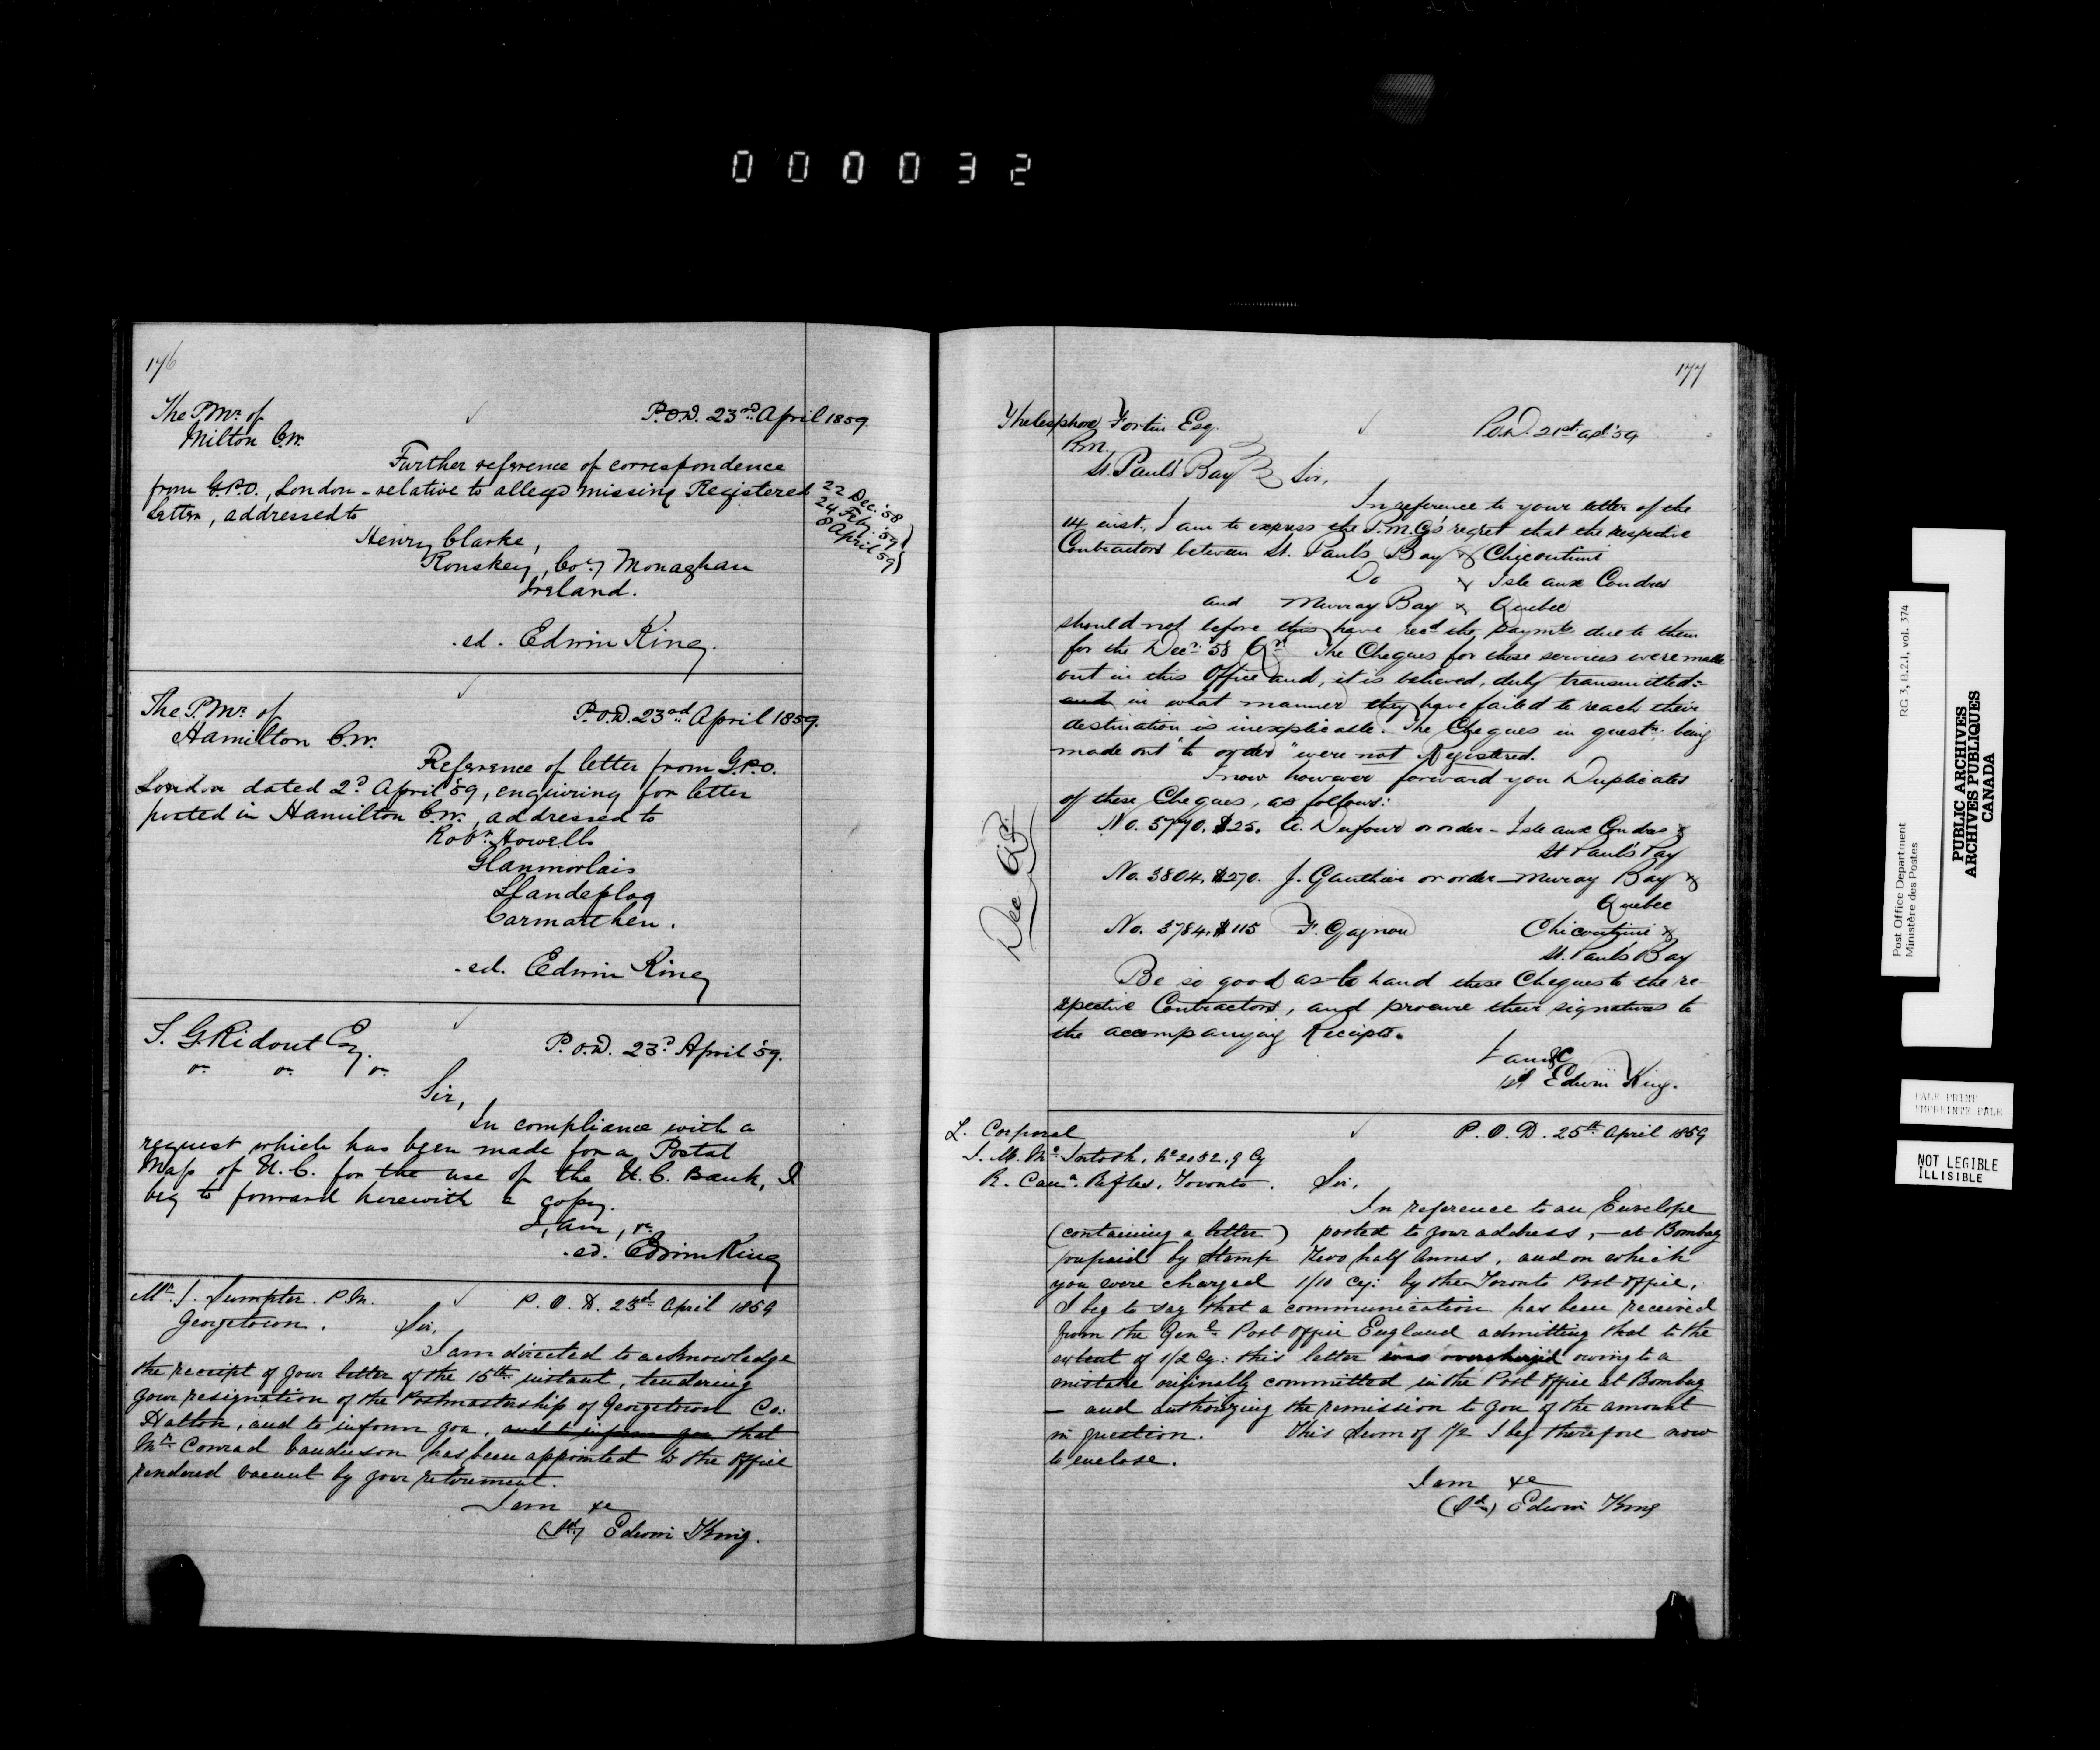 000032
176
The P.Mr. of P.O.D. 23rd April 1859
Milton C.W.
Further reference of correspondence
from G.P.O., London - relative to alleged missing Registered
Letter, addressed to
22 Dec. '58
24 Feby. '59
8 April '59
Henry Clarke,
Co. Monaghan
Ireland.
.ed. Edwin King.
The P.Mr. of P.O.D. 23rd April 1859.
Hamilton C.W.
Reference of letter from G.P.O.
London dated 2d April '59, enquiring for letter
posted in Hamilton C.W., addressed to
Robt. Howells
Glanmorlais
Carmarthen.
.ed. Edwin King
T. G. Ridout Esq. P.O.D. 23d April '59.
Sir,
In compliance with a
request which has been made for a Postal
Map of U.C. for the use of the U.C. Bank, I
beg to forward herewith a copy.
I, am,
.ed. Edwin King
Mr. J. Sumpter. P.M. P.O.D. 23rd April 1859
Georgetown. Sir,
I am directed to acknowledge
the receipt of your letter of the 15th instant, tendering
your resignation of the Postmastership of Georgetown Co:
Halton, and to inform you, and to inform you that
Mr. Conrad has been appointed to the office
rendered vacant by your retirement.
I am &c
(Sd.) Edwin King.
177
Thelesphore Fortin Esq. P.O.D. 21st apl '59
P.M.
St. Paul's Bay Sir,
In reference to your letter of the
14 inst., I am to express the P.M.G's regret that the respective
Contractors between St. Paul's Bay & Chicoutimi
Do & Isle aux Coudres
and Murray Bay & Quebec
should not before this have recd the paymts due to them
for the Decr. '58 Qr. The Cheques for these services were made
out in this Office and, it is believed, duly transmitted:
and in what manner they have failed to reach their
destination is inexplicable. The Cheques in questn. being
made out "to order" were not Registered.
I now however forward you Duplicates
of these Cheques, as follows:
Dec Qr.
No. 3770. $25. A. Dufour or order - Isle aux Coudres &
St Paul's Bay
No. 3804, $270. J. Gauthier or order - Murray Bay &
Quebec
No. 3784, $115 F. Gagnon Chicoutimi &
St. Paul's Bay
Be so good as to hand these Cheques to the re
spective Contractors, and procure their signatures to
the accompanying Receipts.
I am &c
sd Edwin King.
L. Corporal P.O.D. 25th April 1859
J. M. McIntosh, No 2082. 9 Cy
R. Cana. Rifles, Toronto. Sir,
In reference to an Envelope
(containing a letter) posted to your address, - at Bombay
prepaid by Stamp Two half Annas, and on which
you were charged 1/10 Cy: by the Toronto Post Office,
I beg to say that a communication has been received
from the Genl. Post Office England admitting that to the
extent of 1/2 Cy: this letter was overcharged owing to a
mistake originally committed in the Post Office at Bombay
- and authorizing the remission to you of the amount
in question. This sum of 1/2 I beg therefore now
to enclose.
I am &c
(Sd.) Edwin King
Post Office Department RG 3, B.2.1, vol. 374
Ministère des Postes
PUBLIC ARCHIVES
ARCHIVES PUBLIQUES
CANADA
PALE PRINT
EMPREINTE PALE
NOT LEGIBLE
ILLISIBLE